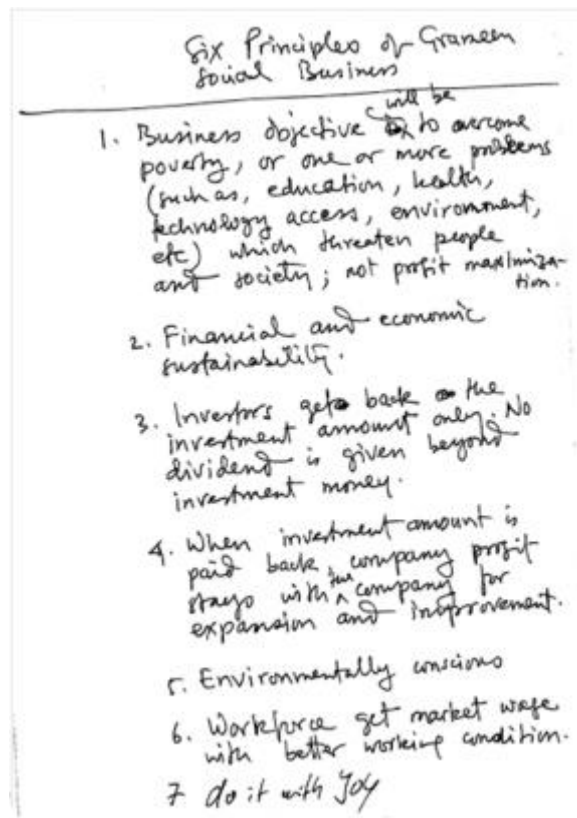 Six Principles of Grameen
Social Business
1. Business objective will be to overcome
poverty, or one or more problems
(such as, education, health,
technology access, environment,
etc) which threaten people
and society; not profit maximiza-
tion.
2. Financial and economic
sustainability.
3. Investors get back the
investment amount only. No
dividend is given beyond
investment money.
4. When investment amount is
paid back company profit
stays with the company for
expansion and improvement.
5. Environmentally conscious
6. Workforce get market wage
with better working condition.
7 do it with Joy